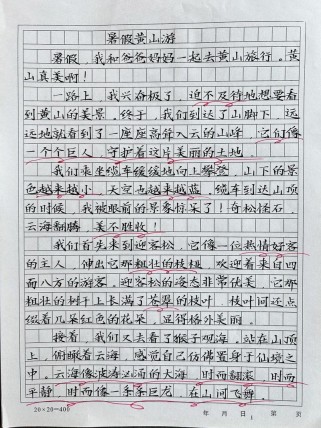 暑假黄山游
暑假，我和爸爸妈妈一起去黄山旅行。黄
山真美啊！
一路上，我兴奋极了，迫不及待地想要看
到黄山的美景。终于，我们到达了山脚下，远
远地就看到了一座座高耸入云的山峰，它们像
一个个巨人，守护着这片美丽的土地。
我们乘坐缆车缓缓地向上攀登，山下的景
色越来越小，天空也越来越蓝，缆车到达山顶
的时候，我被眼前的景象惊呆了！奇松怪石，
云海翻腾，美不胜收！
我们首先来到迎客松，它像一位热情好客
的主人，伸出它那粗壮的枝桠，欢迎着来自四
面八方的游客。迎客松的姿态非常优美，它那
粗壮的树干上长满了苍翠的枝叶，枝叶间还点
缀着几朵红色的花朵，显得格外美丽。
接着，我们又去看了猴子观海。站在山顶
上，俯瞰着云海，感觉自己仿佛置身于仙境之
中。云海像波涛汹涌的大海，时而翻滚，时而
平静，时而像一条条巨龙，在山间飞舞。
20×20=400 年 月 日 第 页